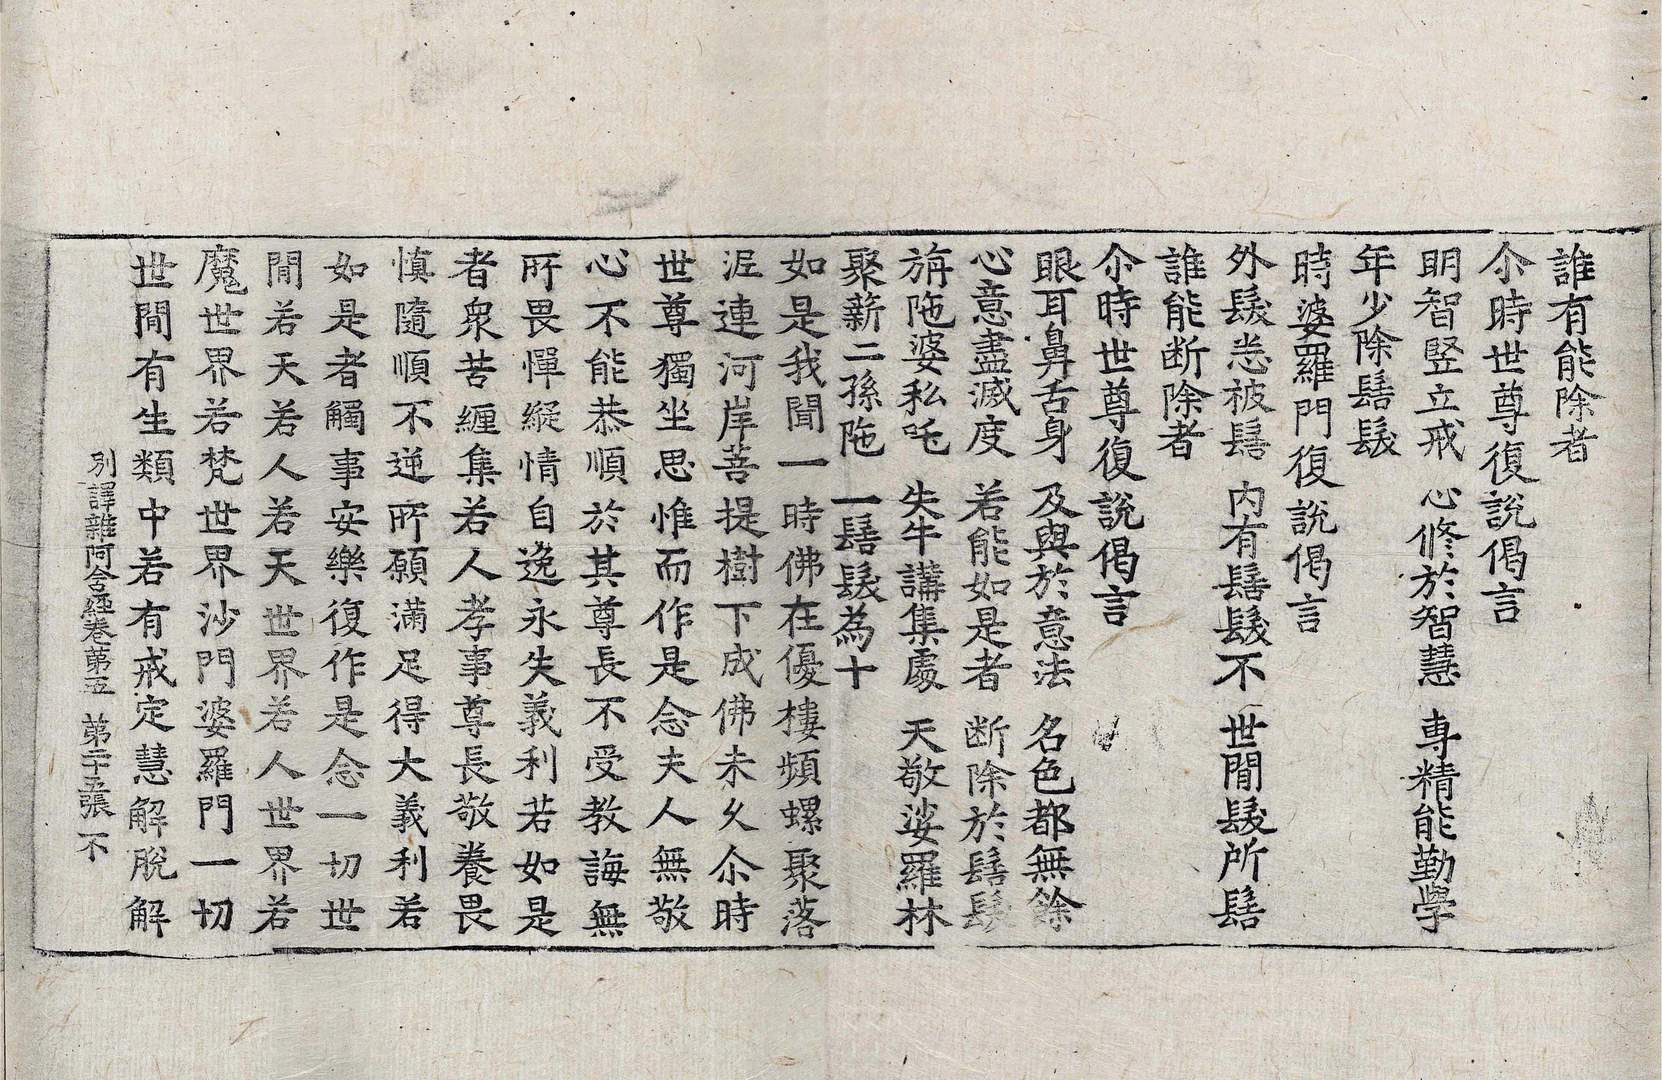 誰有能除者
尒時世尊復說偈言
明智竪立戒　心修於智慧　専精能勤學
年少除髻髮
時婆羅門復說偈言
外髮悉被髻　内有髻髮不　世閒髮所髻
誰能断除者
尒時世尊復說偈言
眼耳鼻舌身　及與於意法　名色都無餘
心意盡滅度　若能如是者　断除於髻髮
旃陁婆私吒　失牛講集處　天敬娑羅林
聚薪二孫陁　一髻髮為十
如是我聞一時佛在優樓頻螺聚落
泥連河岸菩提樹下成佛未久尒時
世尊獨坐思惟而作是念夫人無敬
心不能恭順於其尊長不受教誨無
所畏憚縱情自逸永失義利若如是
者衆苦纏集若人孝事尊長敬養畏
慎隨順不逆所願滿足得大義利若
如是者觸事安樂復作是念一切世
閒若天若人若天世界若人世界若
魔世界若梵世界沙門婆羅門一切
世閒有生類中若有戒定慧解脫解
别譯雜阿含經卷第五　第二十五張　不